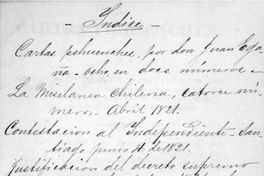 - Indice -
Cartas pehuenches, por don Juan Ega
ña - ocho, en doce números. -
La Miscelanea Chilena, catorce nú-
meros - Abril 1821.
Contestacion al Independiente - San-
tiago junio 11 de 1821.
Justificacion del decreto supremo